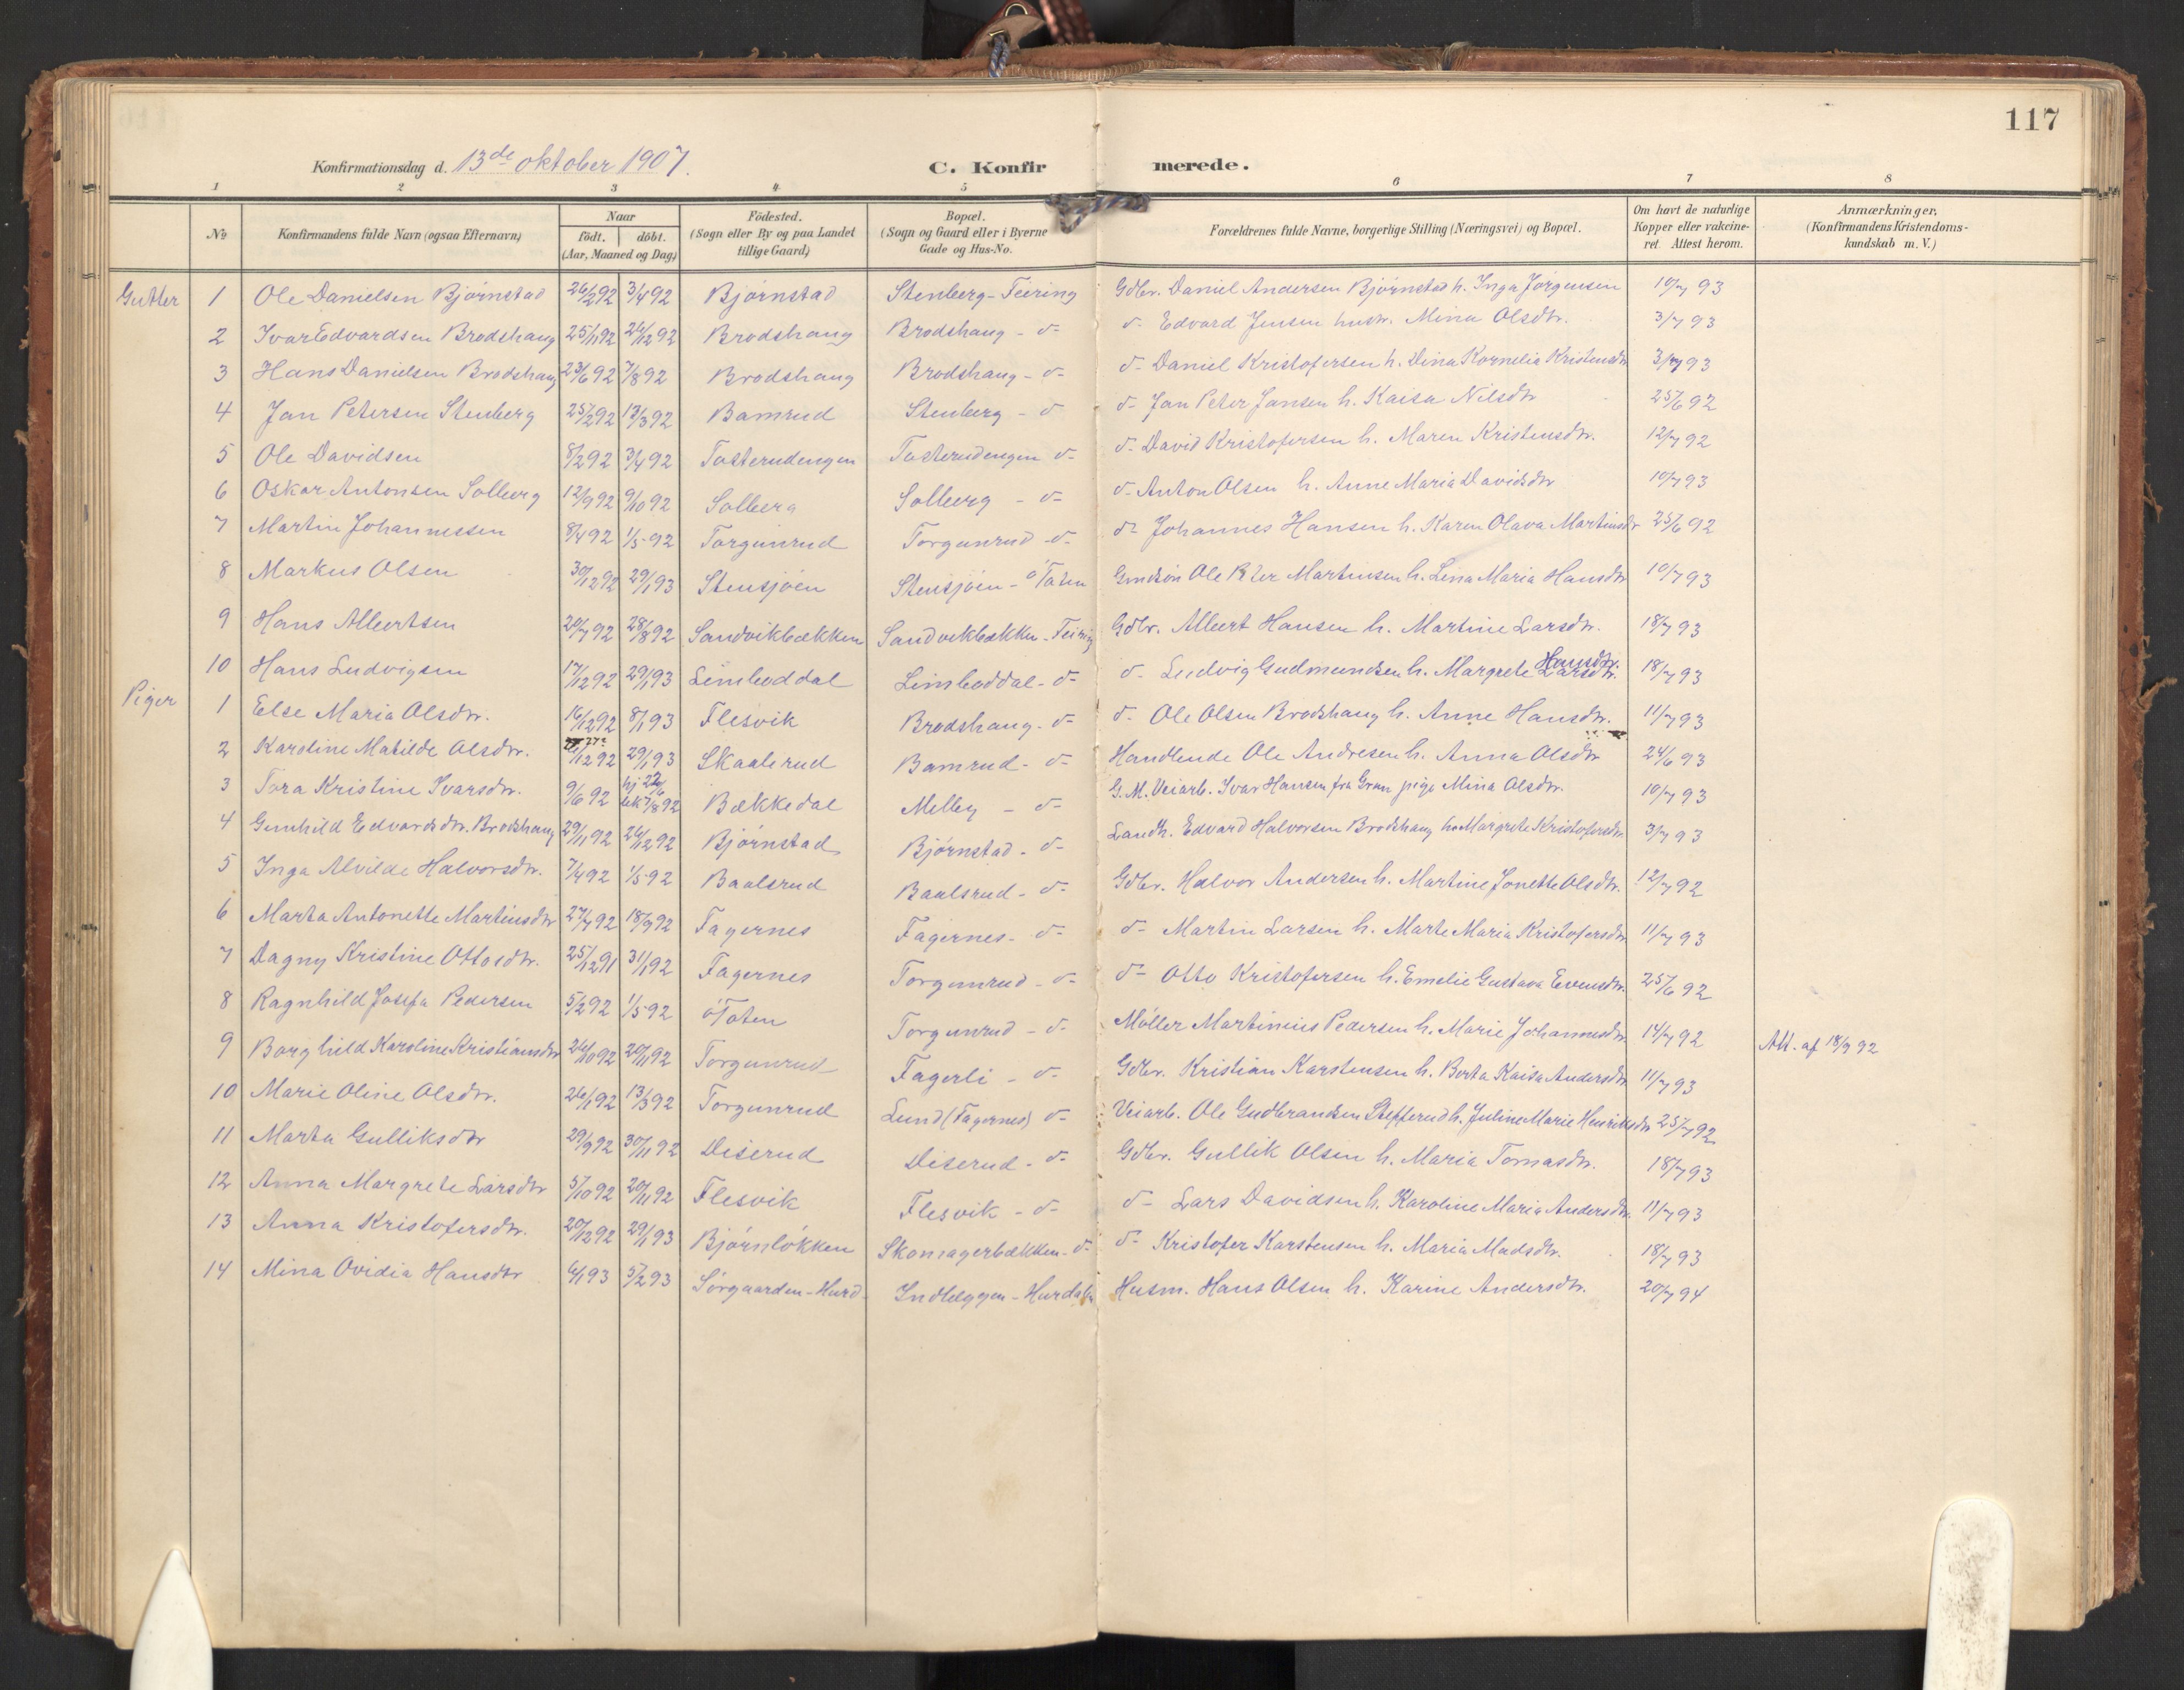 117
Konfirmationsdag d. 13de oktober 1907.
C. Konfirmerede.
1 2 3 4 5 6 7 8
No
Konfirmandens fulde Navn (ogsaa Efternavn)
Naar
födt. döbt.
(Aar, Maaned og Dag)
Födested.
(Sogn eller By og paa Landet
tillige Gaard)
Bopæl.
(Sogn og Gaard eller i Byerne
Gade og Hus-No.
Forældrenes fulde Navne, borgerlige Stilling (Næringsvei) og Bopæl.
Om havt de naturlige
Kopper eller vakcine-
ret. Attest herom.
Anmærkninger,
(Konfirmandens Kristendoms-
kundskab m. V.)
Gutter 1 Ole Danielsen Bjørnstad 26/2 92 3/4 92 Bjørnstad Stenberg - Feiring Gdbr. Daniel Andersen Bjørnstad h. Inga Jørgensen 10/7 93
2 Ivar Edvardsen Brodshaug 25/11 92 26/12 92 Brodshaug Brodshaug - d- d- Edvard Jensen hustr. Mina Olsdtr. 3/7 93
3 Hans Danielsen Brodshaug 23/6 92 7/8 92 Brodshaug Brodshaug - d- d- Daniel Kristofersen h. Dina Kornelia Kristensdtr 3/7 93
4 Jan Petersen Stenberg 25/2 92 13/3 92 Bamrud Stenberg - d d- Jan Peter Jansen h. Kaisa Nilsdtr 25/6 92
5 Ole Davidsen 8/2 92 3/4 92 Tosterudengen Tosterudengen d- d- David Kristofersen h. Maren Kristensdtr. 12/7 92
6 Oskar Antonsen Solberg 12/9 92 9/10 92 Solberg Solberg - d- d- Anton Olsen h. Anne Maria Davidsdtr 10/7 93
7 Martin Johannessen 8/4 92 1/5 92 Torgunrud Torgunrud - d- d- Johannes Hansen h. Karen Olava Martinsdtr 25/6 92
8 Markus Olsen 30/12 92 29/1 93 Stensjøen Stensjøen - ø Toten Ole Peter Martinsen h. Lina Maria Hansdtr 10/7 93
9 Hans Albertsen 20/7 92 28/8 92 Sandvikbækken Sandvekbækken - Feiring Gdbr. Albert Hansen h. Martine Larsdtr. 18/7 93
10 Hans Ludvigsen 17/12 92 29/1 93 Limboddal Limboddal - d- d- Ludvig Gudmundsen h. Margrete Larsdtr. Hansdtr. 18/7 93
Piger 1 Else Maria Olsdtr. 16/12 92 8/1 93 Flesvik Brodshaug - d- d- Ole Olsen Brodshaug h. Anne Hansdtr. 11/7 93
2 Karoline Matilde Olsdtr. /12 92 29/1 93 Skaalerud Bamrud - d- Handlende Ole Andresen h. Anna Olsdtr 24/6 93
3 Tora Kristine Ivarsdtr. 9/6 92 hj 22/6 bek 7/8 92 Bækkedal Melby - d- G. M. Veiarb. Ivar Hansen fra Gran pige Mina Olsdtr. 10/7 93
4 Gunhild Edvardsdtr. Brodshaug 29/11 92 26/12 92 Bjørnstad Bjørnstad - d- Landh. Edvard Halvorsen Brodshaug h. Margrete Kristofersdtr 3/7 93
5 Inga Alvilde Halvorsdtr. 7/4 92 1/5 92 Baalsrud Baalsrud - d- Gdbr. Halvor Andersen h. Martine Jonette Olsdtr. 12/7 92
6 Marta Antonette Martinsdtr 27/7 92 18/9 92 Fagernes Fagernes - d- d- Martin Larsen h. Marte Maria Kristofersdtr 11/7 93
7 Dagny Kristine Ottosdtr. 25/12 91 31/1 92 Fagernes Torgunrud - d- d- Otto Kristofersen h. Emelie Gustava Evensdtr. 25/6 92
8 Ragnhild Josefa Pedersen 5/2 92 1/5 92 ø Toten Torgunrud - d- Møller Martinius Pedersen h. Marie Johannesdtr 14/7 92 Att. af 18/9 92
9 Borghild Karoline Kristiansdtr 26/10 92 20/11 92 Torgunrud Fagerli - d- Gdbr. Kristian Karstensen h. Berta Kaisa Andersdtr 11/7 93
10 Marie Oline Olsdtr. 26/1 92 13/3 92 Torgunrud Lund (Fagernes) d- Veiarb. Ole Gudbrandsen Stefferud h. Juline Marie Henriksdtr 25/7 92
11 Marta Gulliksdtr 29/9 92 30/11 92 Diserud Diserud - d- Gdbr. Gullik Olsen h. Maria Tomasdtr. 18/7 93
12 Anna Margrete Larsdtr 5/10 92 20/11 92 Flesvik Flesvik - d- d- Lars Davidsen h. Karoline Maria Andersdtr. 11/7 93
13 Anna Kristofersdtr. 20/12 92 29/1 93 Bjørnløkken Skomagerbækken - d- d- Kristofer Karstensen h. Maria Madsdtr. 18/7 93
14 Mina Ovidia Hansdtr 6/1 93 5/2 93 Sørgaarden - Hurd- Indleggen - Hurdalen Husm. Hans Olsen h. Karine Andersdtr. 20/7 94